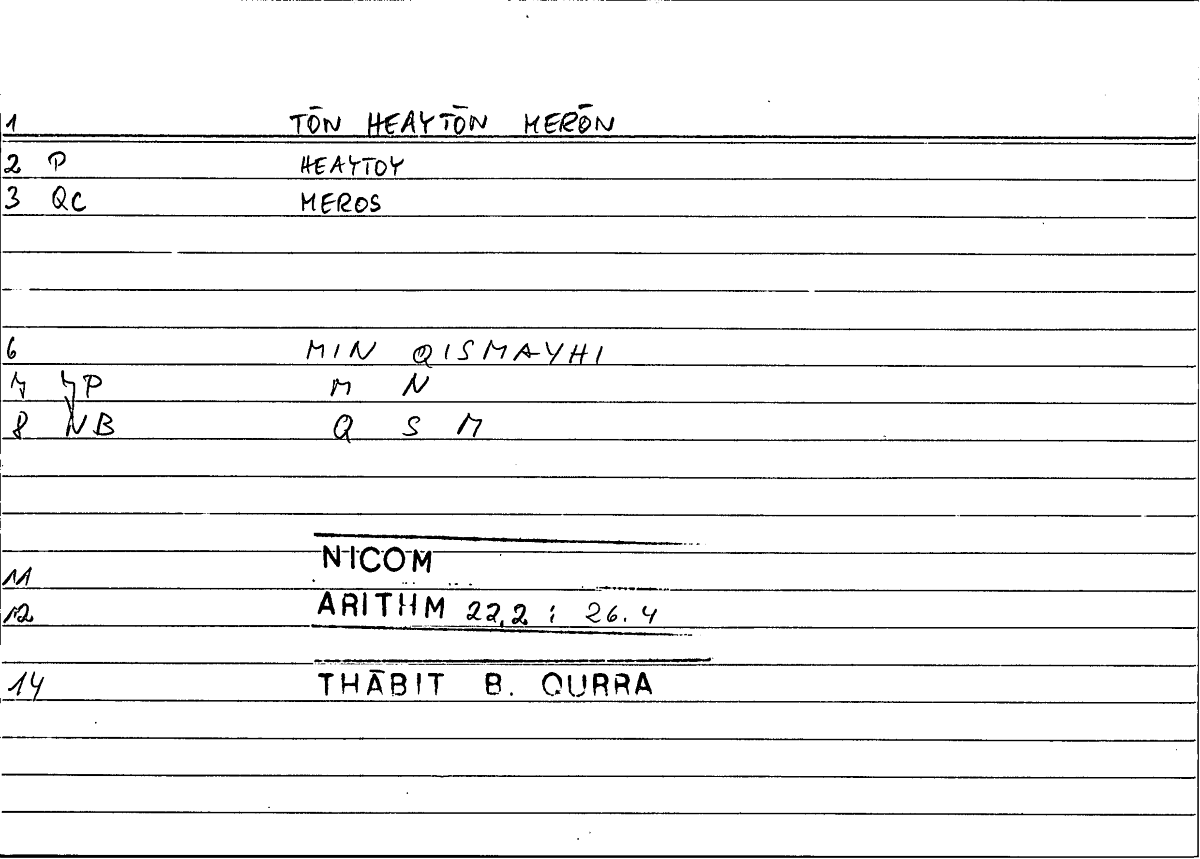 1 TŌN HEAYTŌN MERŌN
2 P HEAYTOY
3 QC MEROS
6 MIN QISMAYHI
7 P M N
8 NB Q S M
NICOM
11
12 ARITHM 22,2 ; 26.4
14 THĀBIT B. QURRA